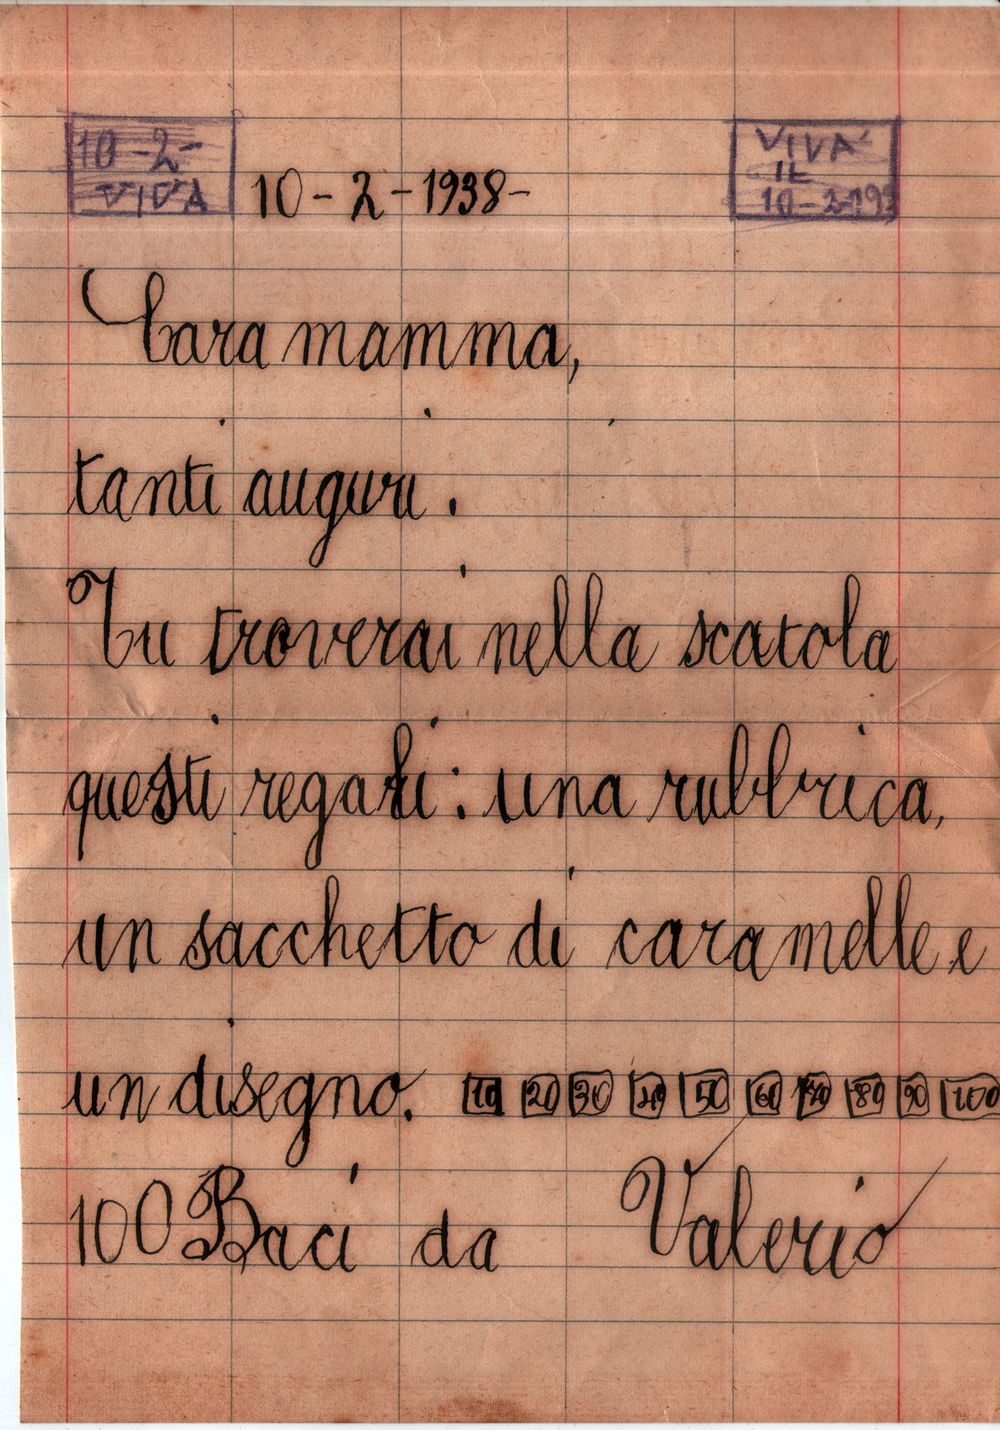 10-2-
VIVA
10-2-1938-
VIVA
IL
10-2-193
Cara mamma,
tanti auguri.
Tu troverai nella scatola
questi regali: una rubbrica,
un sacchetto di caramelle e
un disegno. 10 20 30 40 50 60 70 80 90 100
100 Baci da Valerio